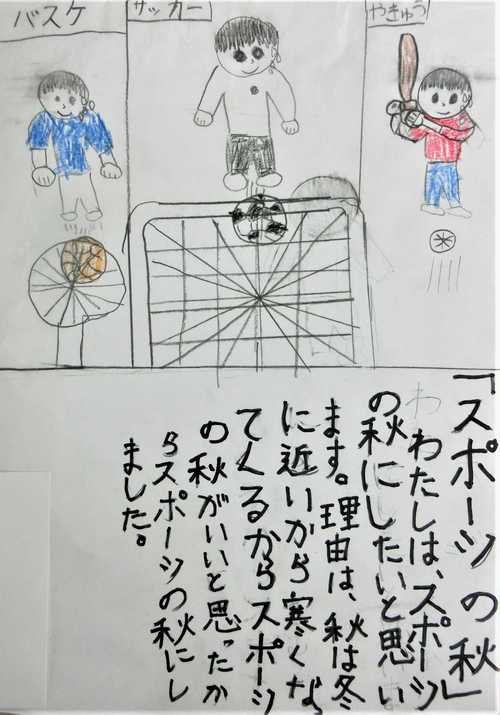 バスケ
サッカー
やきゅう
「スポーツの秋」
わたしは、スポーツ
の秋にしたいと思い
ます。理由は、秋は冬
に近いから寒くなっ
てくるからスポーツ
の秋がいいと思ったか
らスポーツの秋にし
ました。